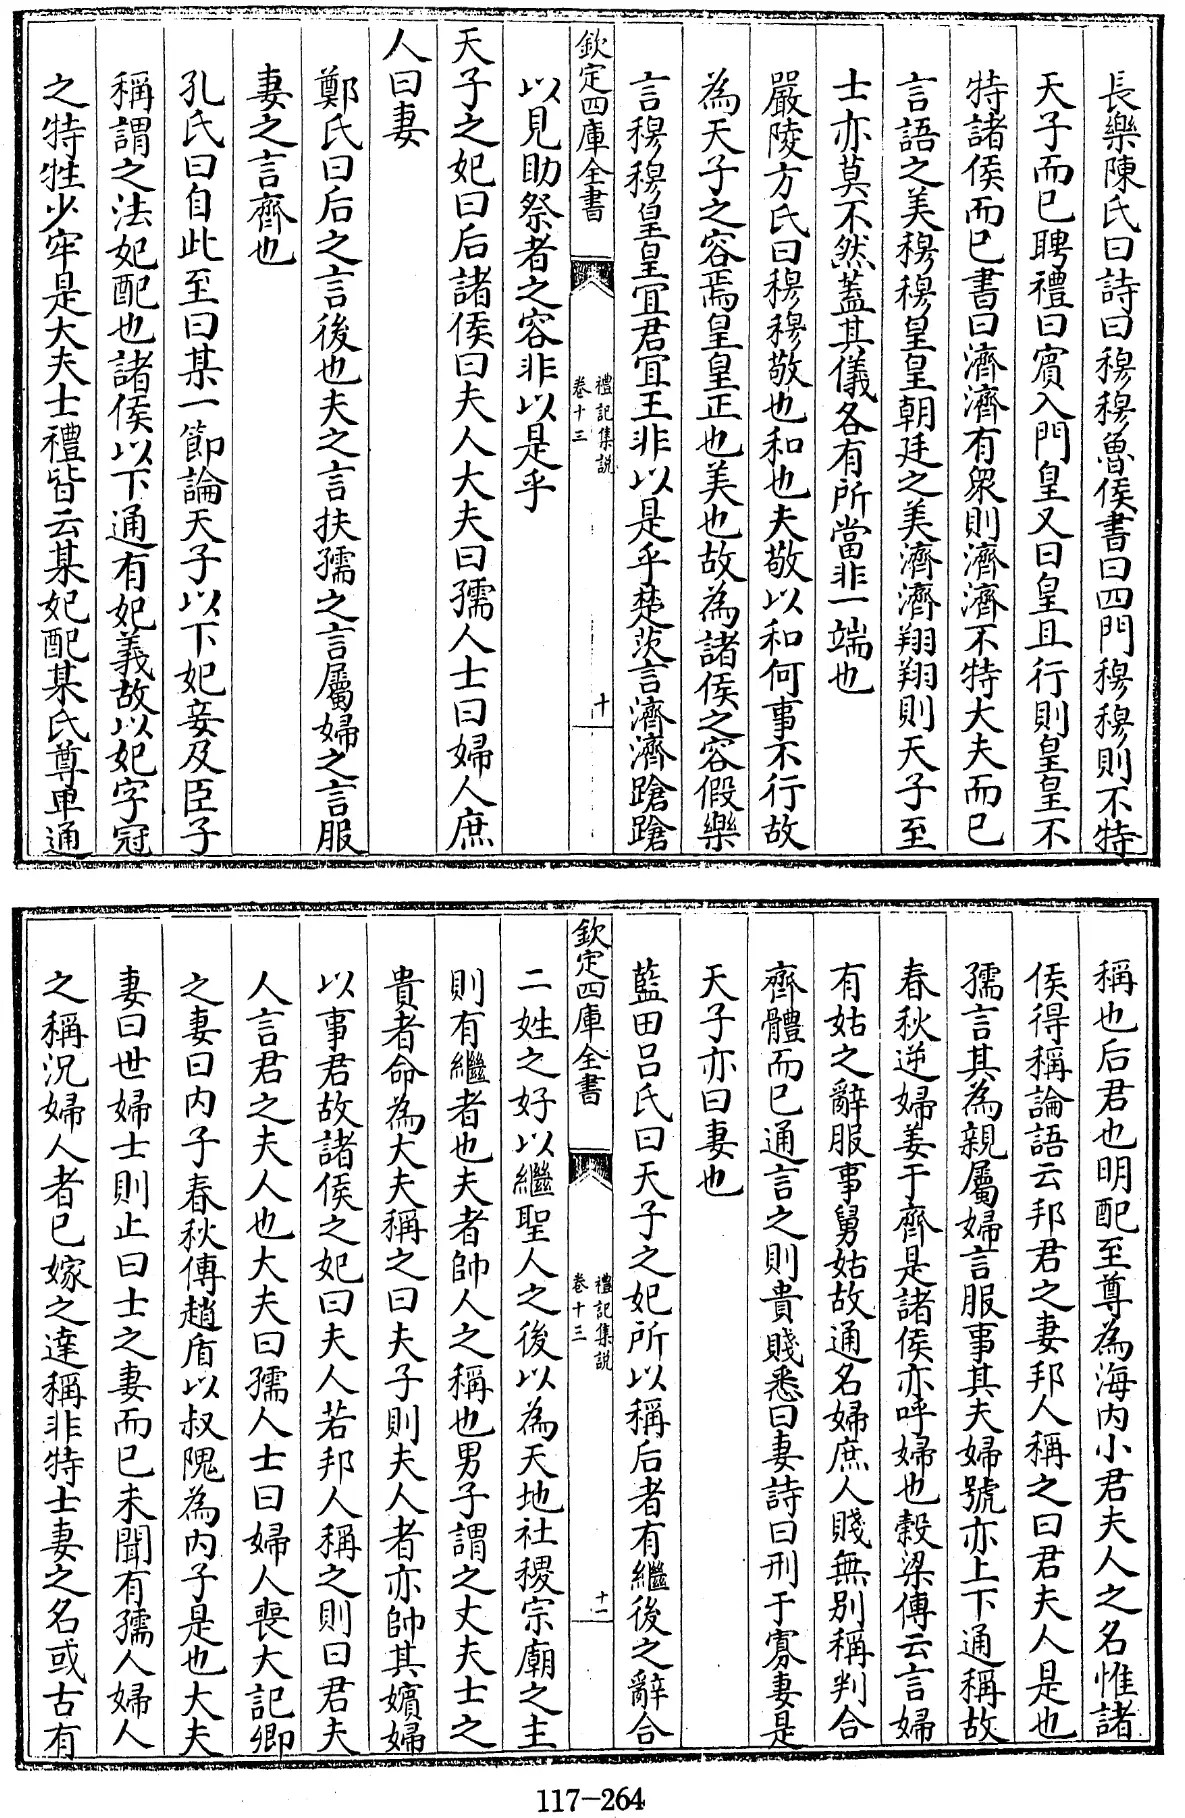 長樂陳氏曰詩曰穆穆魯侯書曰四門穆穆則不特
天子而已聘禮曰賓入門皇又曰皇且行則皇皇不
特諸侯而已書曰濟濟有衆則濟濟不特大夫而已
言語之美穆穆皇皇朝廷之美濟濟翔翔則天子至
士亦莫不然蓋其儀各有所當非一端也
嚴陵方氏曰穆穆敬也和也夫敬以和何事不行故
為天子之容焉皇皇正也美也故為諸侯之容假樂
言穆穆皇皇宜君宜王非以是乎楚茨言濟濟蹌蹌
欽定四庫全書
禮記集說
卷十三
十
以見助祭者之容非以是乎
天子之妃曰后諸侯曰夫人大夫曰孺人士曰婦人庶
人曰妻
鄭氏曰后之言後也夫之言扶孺之言屬婦之言服
妻之言齊也
孔氏曰自此至曰某一節論天子以下妃妾及臣子
稱謂之法妃配也諸侯以下通有妃義故以妃字冠
之特牲少牢是大夫士禮皆云某妃配某氏尊卑通
稱也后君也明配至尊為海内小君夫人之名惟諸
侯得稱論語云邦君之妻邦人稱之曰君夫人是也
孺言其為親屬婦言服事其夫婦號亦上下通稱故
春秋逆婦姜于齊是諸侯亦呼婦也榖梁傳云言婦
有姑之辭服事舅姑故通名婦庶人賤無别稱判合
齊體而已通言之則貴賤悉曰妻詩曰刑于寡妻是
天子亦曰妻也
藍田呂氏曰天子之妃所以稱后者有繼後之辭合
欽定四庫全書
禮記集說
卷十三
十一
二姓之好以繼聖人之後以為天地社稷宗廟之主
則有繼者也夫者帥人之稱也男子謂之丈夫士之
貴者命為大夫稱之曰夫子則夫人者亦帥其嬪婦
以事君故諸侯之妃曰夫人若邦人稱之則曰君夫
人言君之夫人也大夫曰孺人士曰婦人喪大記卿
之妻曰内子春秋傳趙盾以叔隗為内子是也大夫
妻曰世婦士則止曰士之妻而已未聞有孺人婦人
之稱況婦人者已嫁之達稱非特士妻之名或古有
117-264